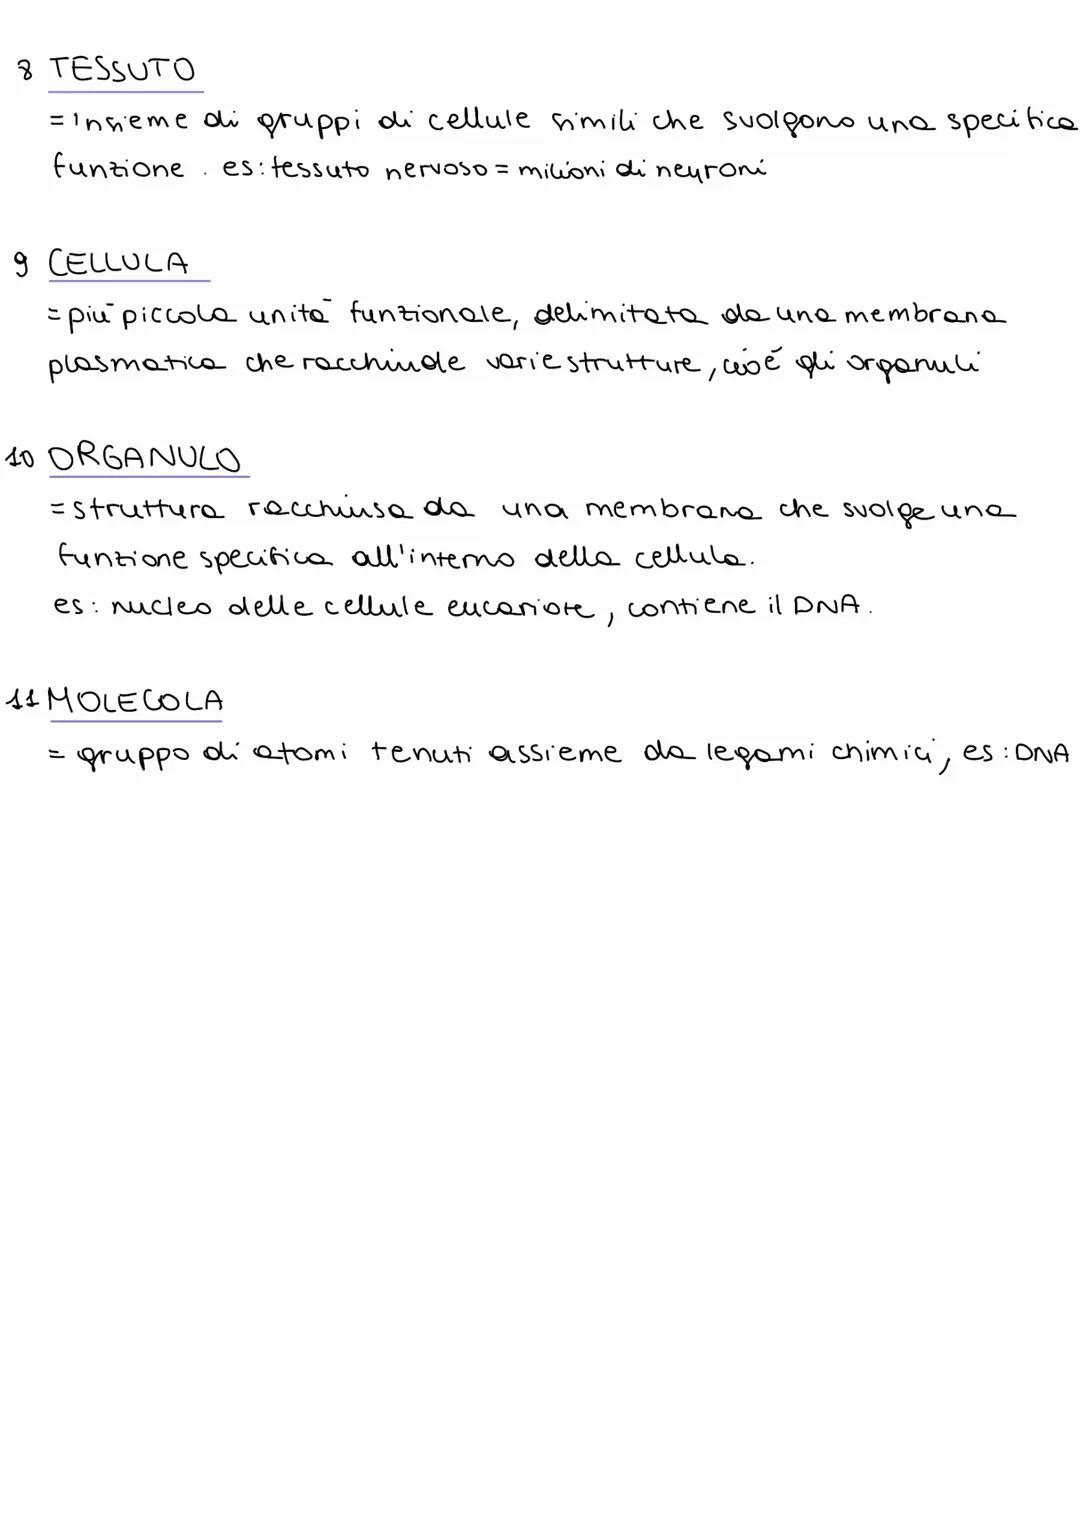 8 TESSUTO
= insieme di gruppi di cellule simili che svolgono una specifica
funzione. es: tessuto nervoso = milioni di neuroni
9 CELLULA
= più piccola unità funzionale, delimitata da una membrana
plasmatica che racchiude varie strutture, cioè gli organuli
10 ORGANULO
= struttura racchiusa da una membrana che svolge una
funzione specifica all'interno della cellula.
es: nucleo delle cellule eucariote, contiene il DNA.
11 MOLECOLA
= gruppo di atomi tenuti assieme da legami chimici, es: DNA